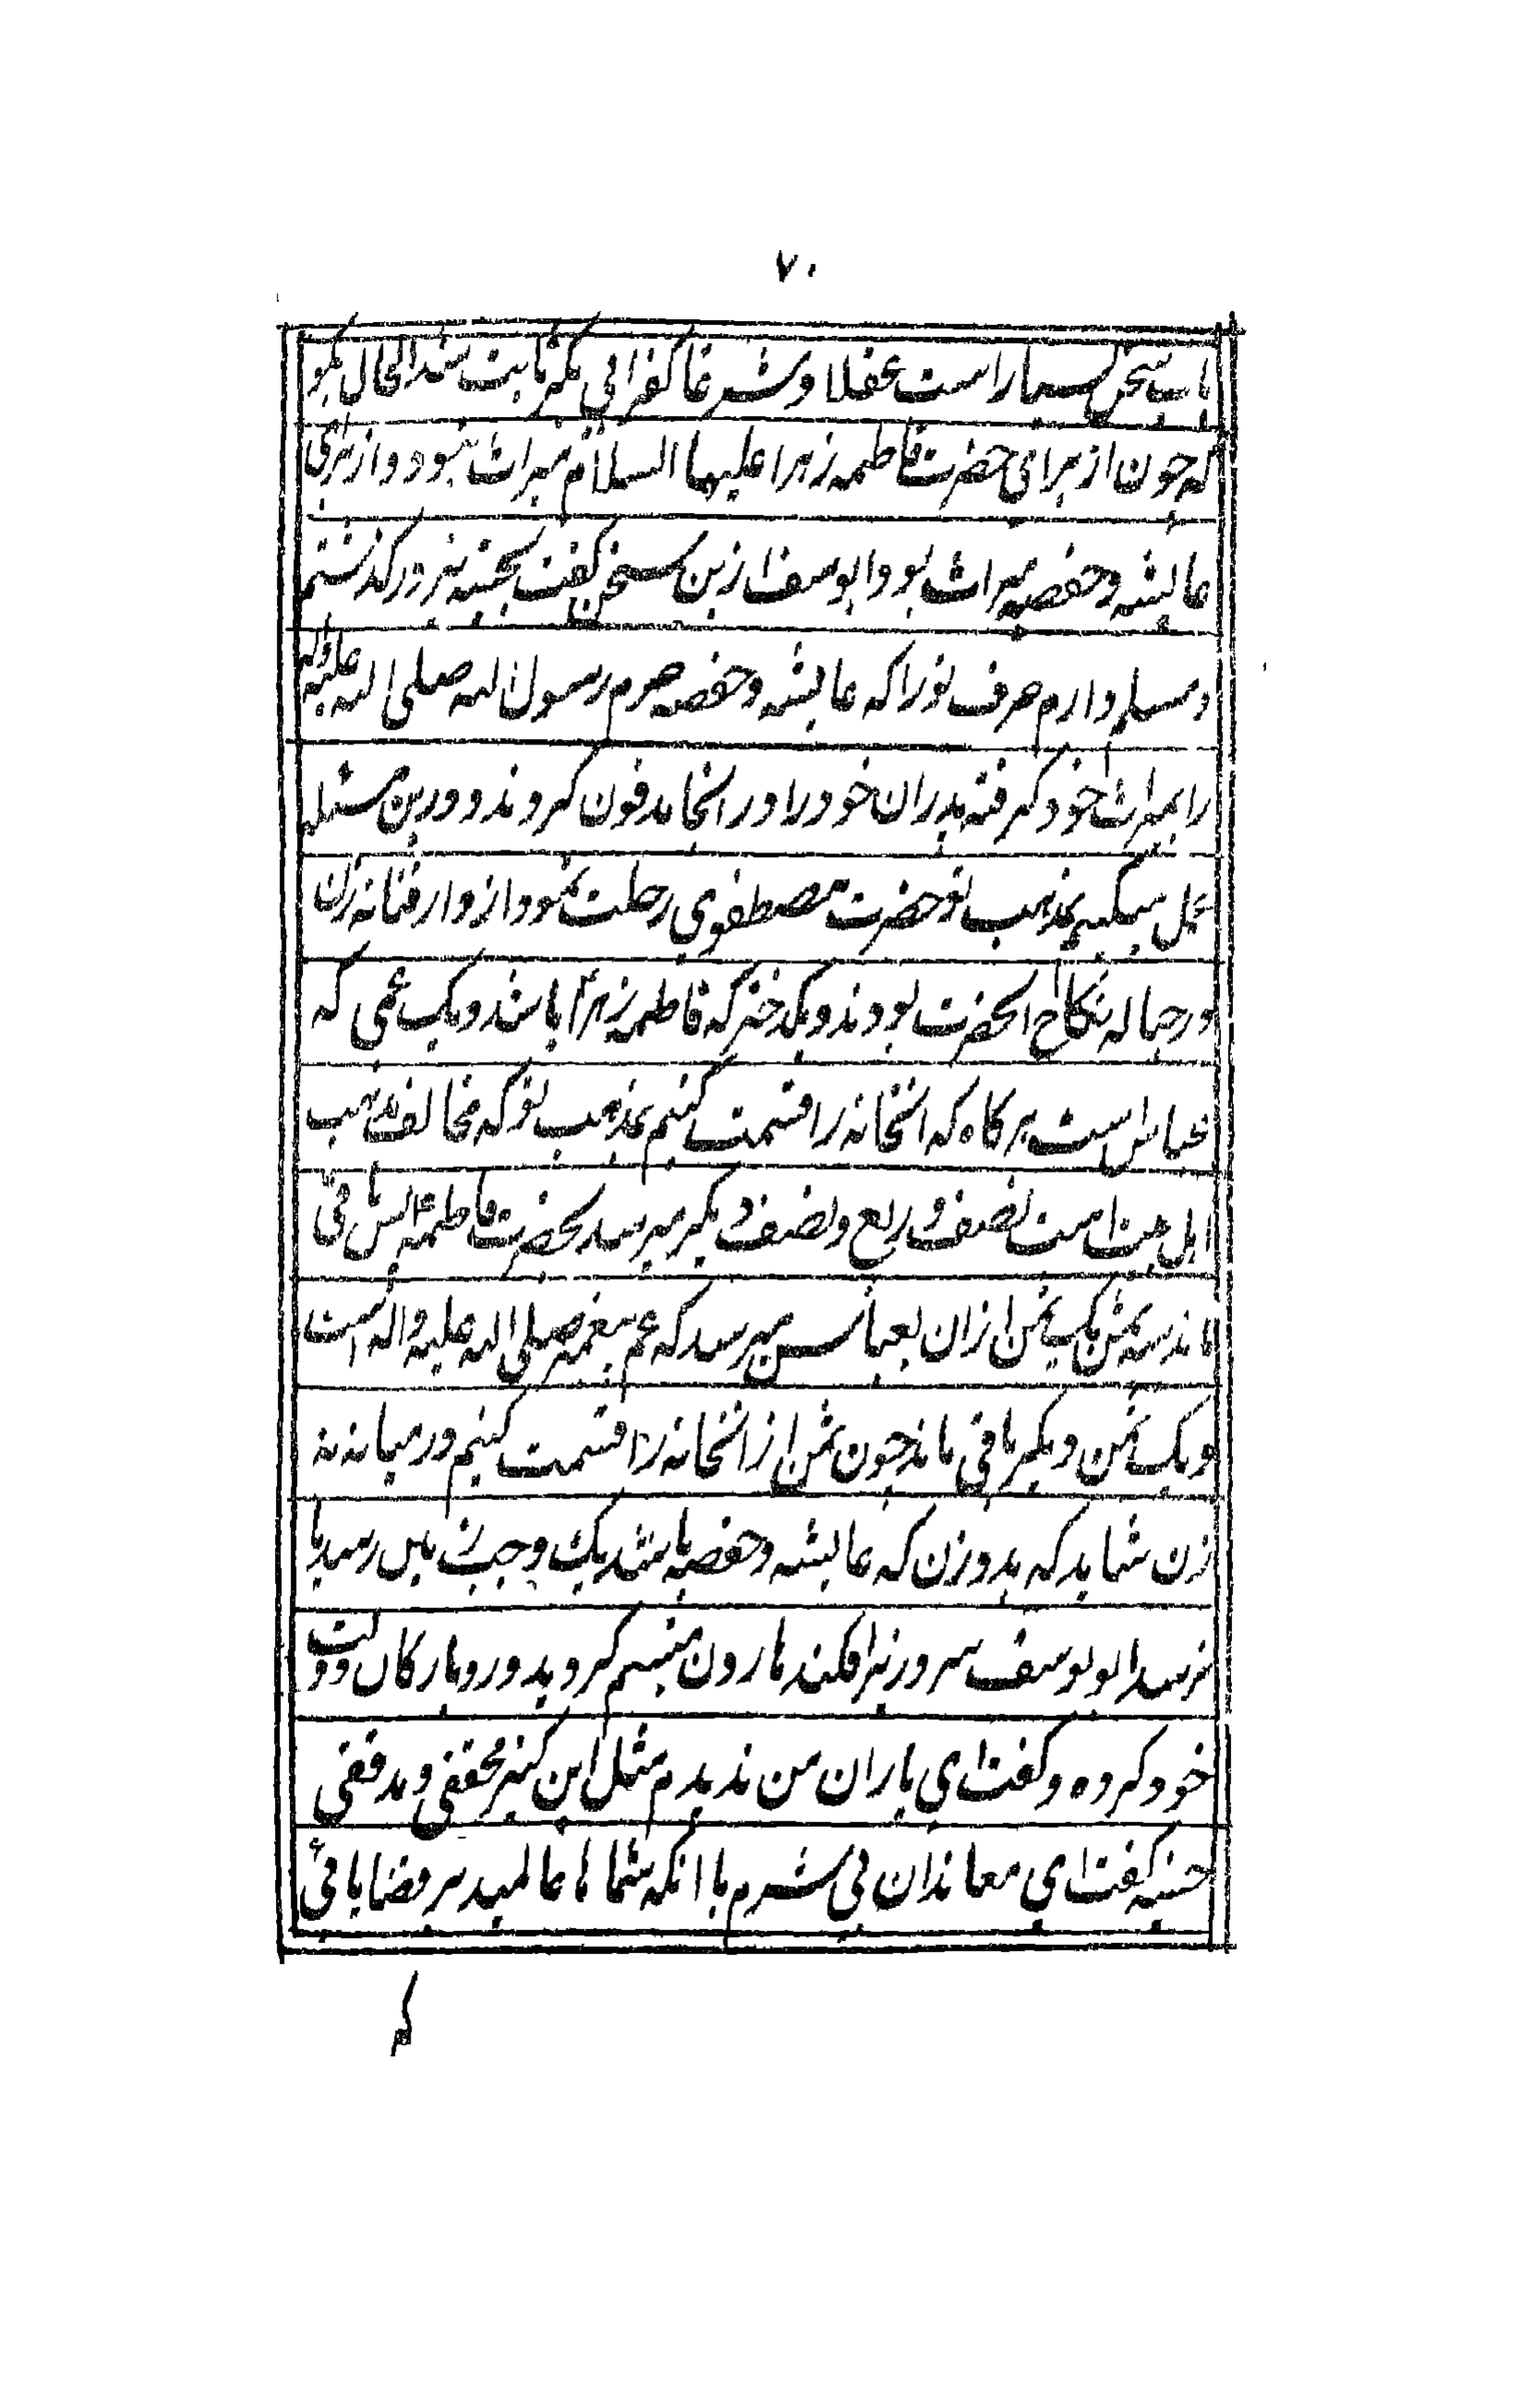 ۷۰
باب سخن بسیار است عقلا و شرعا کفر ابی بکر ثابت شد الحال بگو
که چون از برای حضرت فاطمه زهرا علیها السلام میراث نبود و از برای
عایشه و حفصه میراث بود ابو یوسف ازین سخن گفت حسنیه نیز در گذشتم
و مسلم دارم حرف تو را که عایشه و حفصه حرم رسول الله صلی الله علیه واله
را بمیراث خود گرفته پدران خود را در انجا مدفون کردند و درین مسئله
عمل میکنیم بمذهب تو حضرت مصطفوی رحلت نمود از دار فنا نه زن
در حباله نکاح انحضرت بودند و یکدختر که فاطمه زهرا باشد و یک عمی که
عباس است هر کاه که انخانه را قسمت کنیم بمذهب تو که مخالف مذهب
اهل بیت است نصف و ربع و نصف دیگر میرسد بحضرت فاطمه ع پس باقی
ماند سه ثمن یک ثمن از ان بعباس میرسد که عم پیغمبر صلی الله علیه واله است
و یک ثمن دیگر باقی ماند چون ثمن از انخانه را قسمت کنیم در میانه نه
زن شاید که بدو زن که عایشه و حفصه باشد یک وجب زمین رسد یا
نرسد ابو یوسف سر در زیر افکند هارون تبسم کرد و بدور و بار کان دولت
خود کرده و گفت ای یاران من ندیدم مثل این کنیز محققی و مدققی
حسنیه گفت ای معاندان بی شرم با انکه شماها عالمید بر قضایائی
که